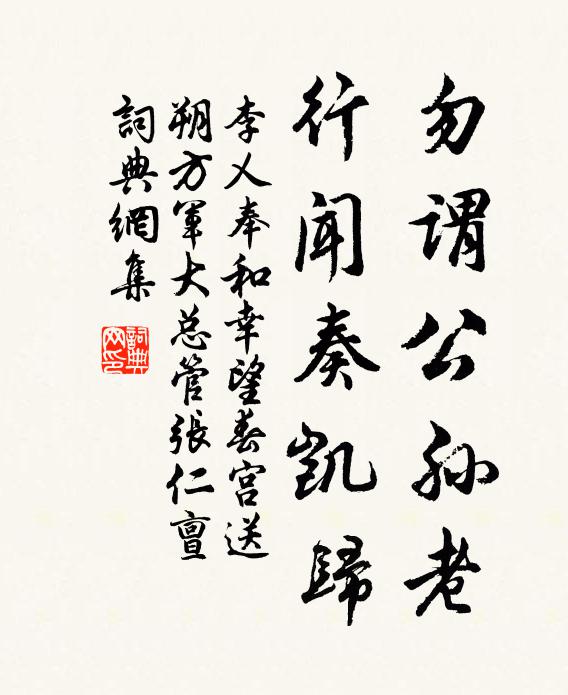 勿謂公孙老
行闻奏凯歸
李乂奉和幸望春宫送
朔方軍大总管張仁亶
詞典網集
詞典网印